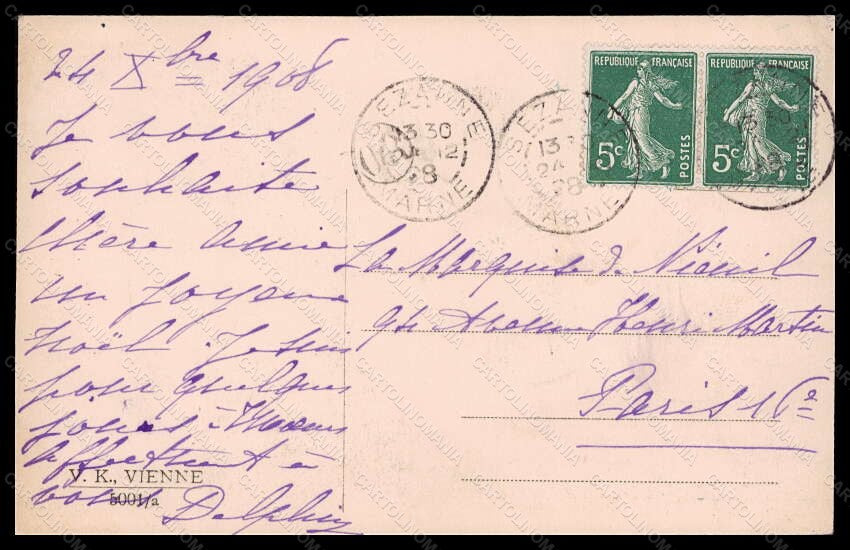 24 Xbre 1908
Je vous
souhaite
chère amie
un joyeux
Noël. Je suis
pour quelques
jours à
affectueust à
vous Delphine
V. K., VIENNE
5001/a
SEZANNE
13 30
24 12
08
MARNE
SEZANNE
13
24
08
MARNE
REPUBLIQUE FRANÇAISE
5c
POSTES
REPUBLIQUE FRANÇAISE
5c
POSTES
La Marquise de Nieuil
94 Avenue Henri Martin
Paris 16e
CARTOLINOMANIA